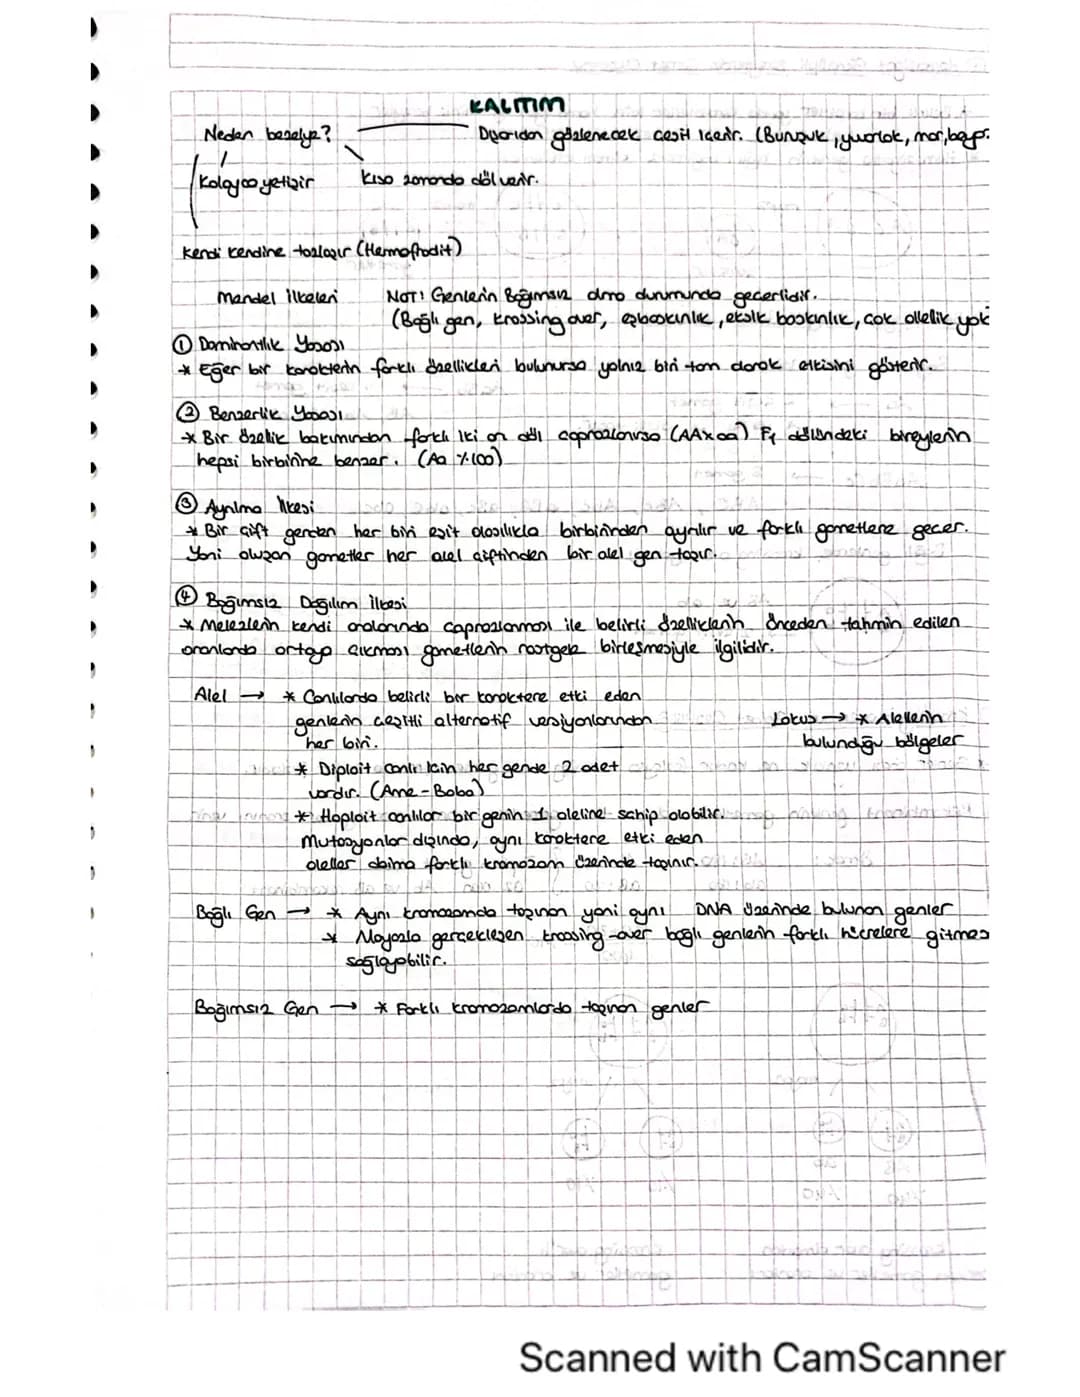 KALITIM
Neden bezelye? Dışarıdan gözlenecek çeşit içerir. (Buruşuk, yuvarlak, mor, beyaz.
Kolayca yetişir Kısa zamanda döl verir.
Kendi kendine tozlaşır (Hermofrodit)
Mandel İlkeleri NOT! Genlerin Bağımsız olma durumunda geçerlidir.
(Bağlı gen, krossing over, eşbaskınlık, eksik baskınlık, çok alellik yok
① Dominantlık Yasası
* Eğer bir karakterin farklı özellikleri bulunursa yalnız biri tam olarak etkisini gösterir.
② Benzerlik Yasası
* Bir özellik bakımından farklı iki arı döl çaprazlanırsa (AAxaa) F₁ dölündeki bireylerin
hepsi birbirine benzer. (Aa %100)
③ Ayrılma İlkesi
* Bir çift genden her biri eşit olasılıkla birbirinden ayrılır ve farklı gametlere geçer.
Yani oluşan gametler her alel çiftinden bir alel gen taşır.
④ Bağımsız Dağılım İlkesi
* Melezlerin kendi aralarında çaprazlanması ile belirli özelliklerin önceden tahmin edilen
oranlarda ortaya çıkması gametlerin rastgele birleşmesiyle ilgilidir.
Alel → * Canlılarda belirli bir karaktere etki eden
genlerin çeşitli alternatif versiyonlarından
her biri.
Lokus → * Alellerin
bulunduğu bölgeler
* Diploit canlı için her gende 2 adet
vardır. (Anne-Baba)
* Haploit canlılar bir genin 1 aleline sahip olabilir.
Mutasyonlar dışında, aynı karaktere etki eden
aleller daima farklı kromozom üzerinde taşınır.
Bağlı Gen → * Aynı kromozomda taşınan yani aynı DNA üzerinde bulunan genler
* Mayozla gerçekleşen krossing-over bağlı genlerin farklı hücrelere gitmes
sağlayabilir.
Bağımsız Gen → * Farklı kromozomlarda taşınan genler
Scanned with CamScanner